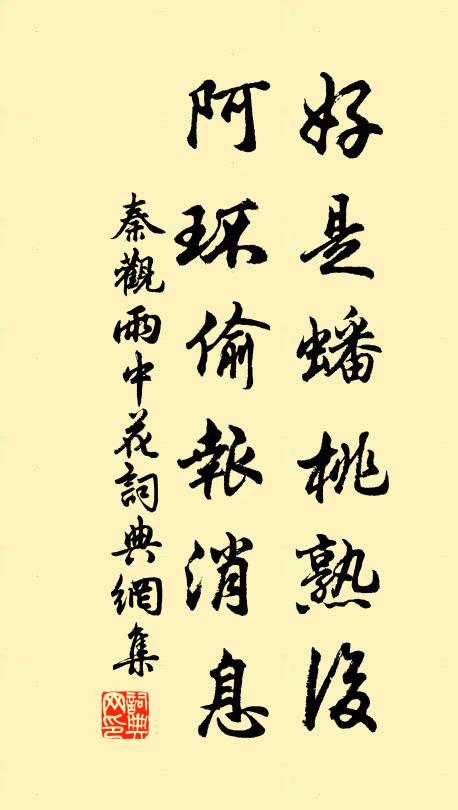 好是蟠桃熟後
阿环偷報消息
秦觀雨中花詞典網集
詞典網印